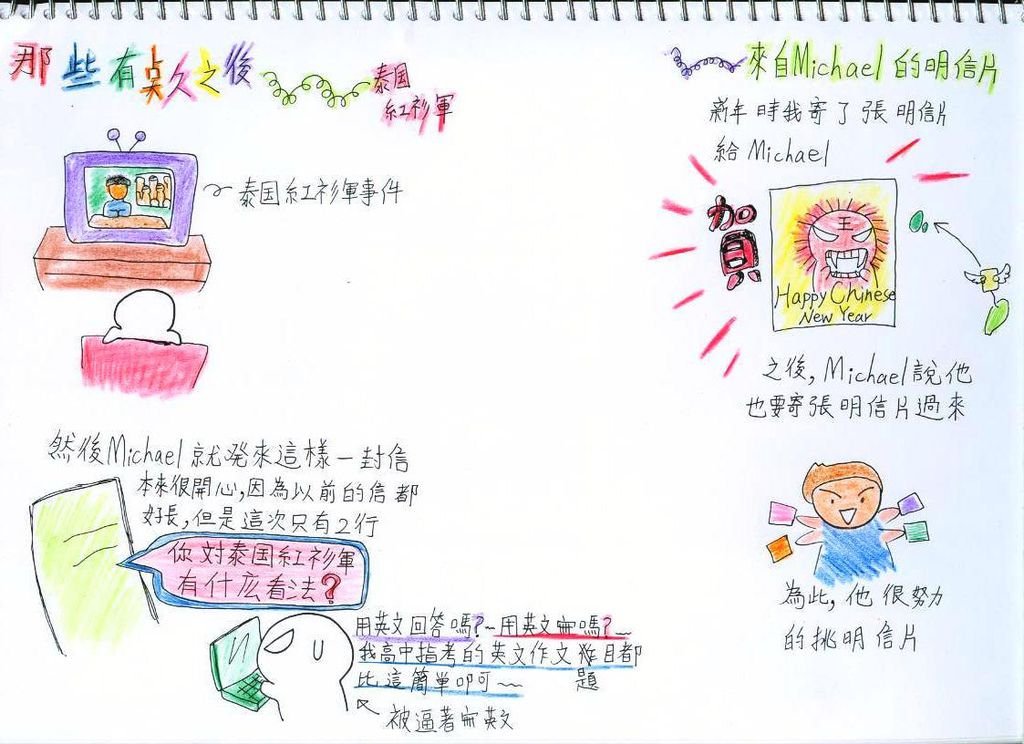 那些有点久之後
泰国
紅衫軍
泰国紅衫軍事件
然後Michael就發來這樣一封信
本來很開心,因為以前的信都
好長,但是這次只有2行
你对泰国紅衫軍
有什庅看法?
用英文回答嗎?~用英文ㄇ嗎?~~
我高中指考的英文作文難目都
比這簡單叩可~~ 題
被逼著ㄇ英文
來自Michael的明信片
新年時我寄了張明信片
給Michael
賀
王
Happy Chinese
New Year
之後,Michael說他
也要寄張明信片過來
為此,他很努力
的挑明信片